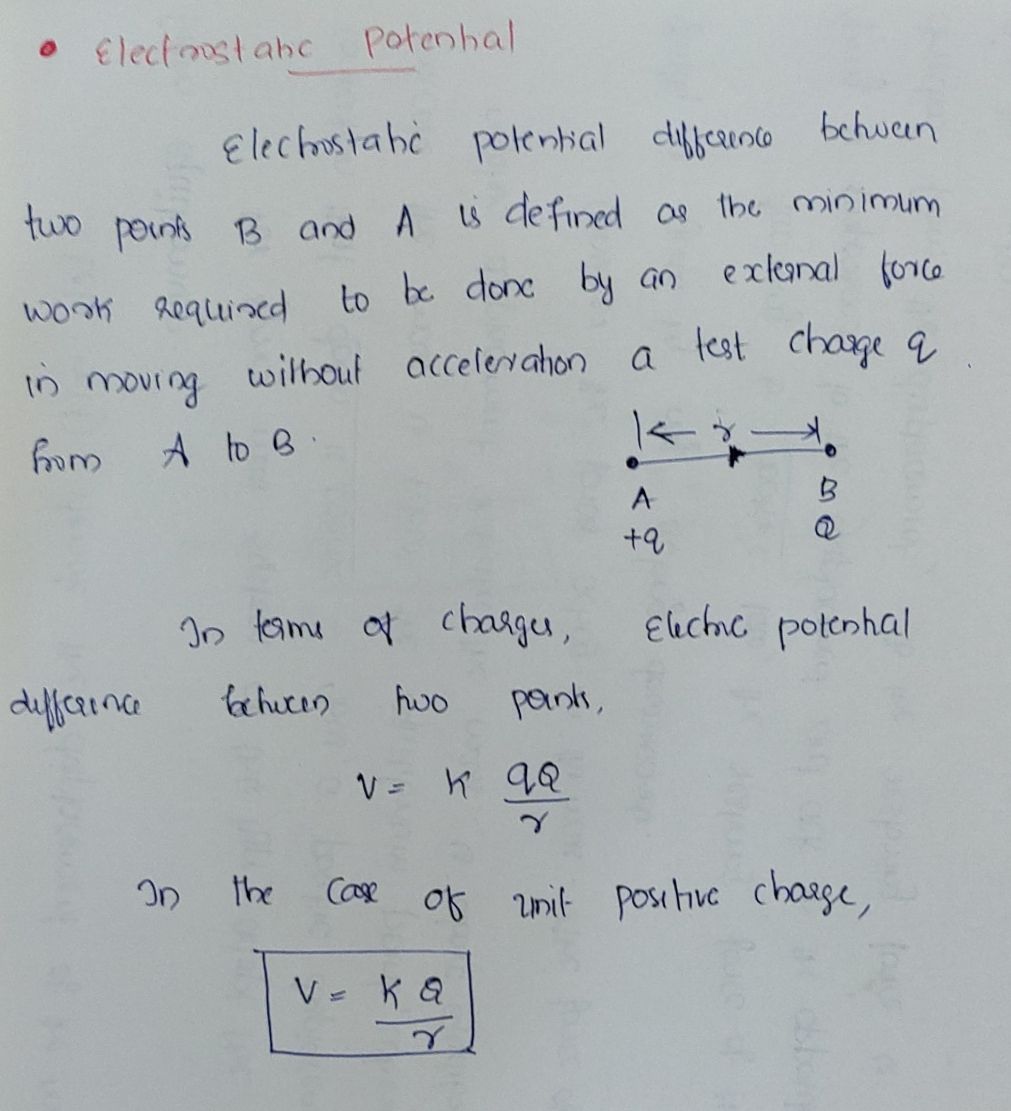 • Electrostatic Potential
Electrostatic potential difference between
two points B and A is defined as the minimum
work required to be done by an external force
in moving without acceleration a test charge q
from A to B.
|← r →|
A B
+q Q
In terms of charges, Electric potential
difference between two points,
V = K qQ/r
In the case of unit positive charge,
V = KQ/r